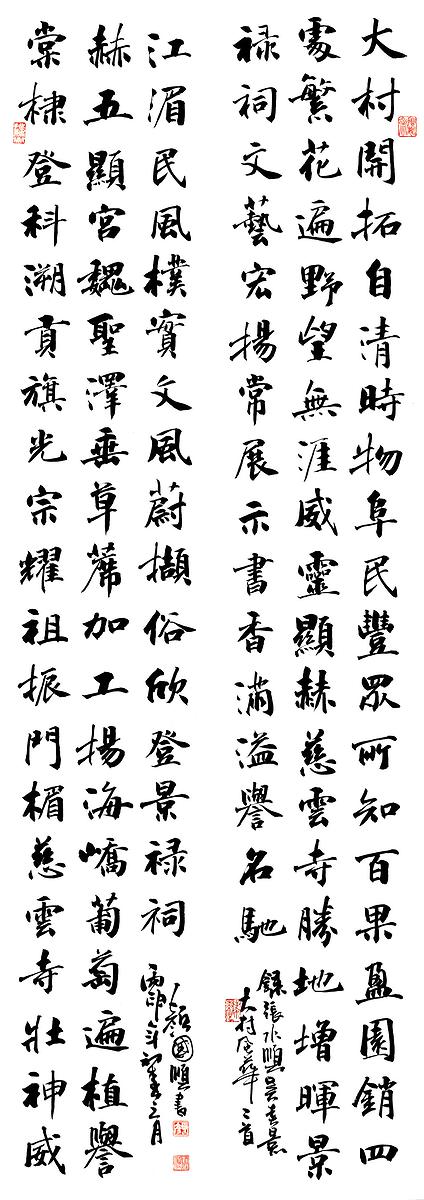 大村開拓自清時物阜民豐眾所知百果盈園銷四
處繁花遍野望無涯威靈顯赫慈雲寺勝地增暉景
祿祠文藝宏揚常展示書香滿溢譽名馳
錄張水順吳春景
大村風華二首
棠棣登科溯貢旗光宗耀祖振門楣慈雲寺壯神威
赫五顯宮魏聖澤垂草蓆加工揚海嶠葡萄遍植譽
江湄民風樸實文風蔚擷俗欣登景祿祠
丙申年初春三月
顏國順書